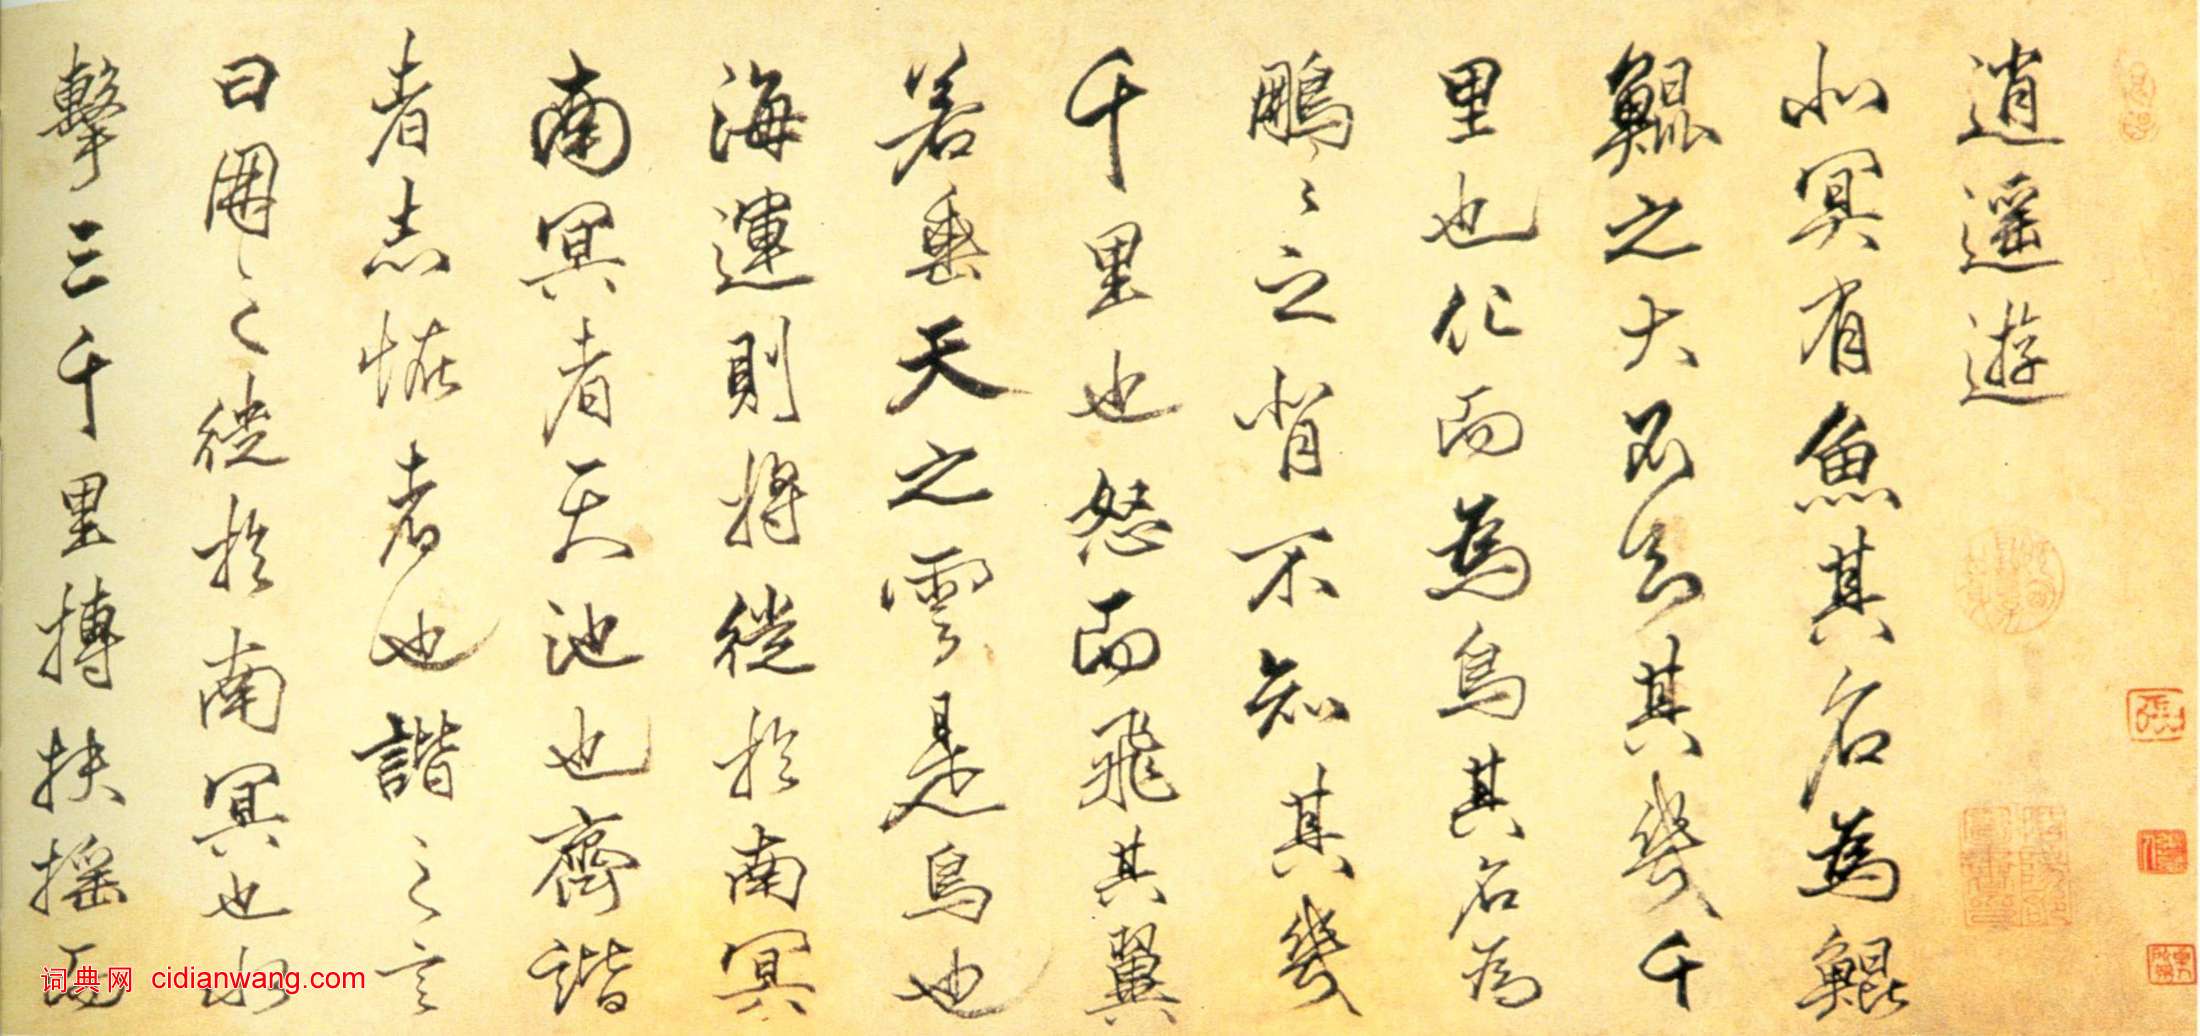 逍遥遊
北冥有魚其名為鯤
鯤之大不知其幾千
里也化而為鳥其名為
鵬〻之背不知其幾
千里也怒而飛其翼
若垂天之雲是鳥也
海運則將徙於南冥
南冥者天池也齊諧
者志恠者也諧之言
曰鵬〻之徙於南冥也水
擊三千里摶扶摇而
词典网 cidianwang.com